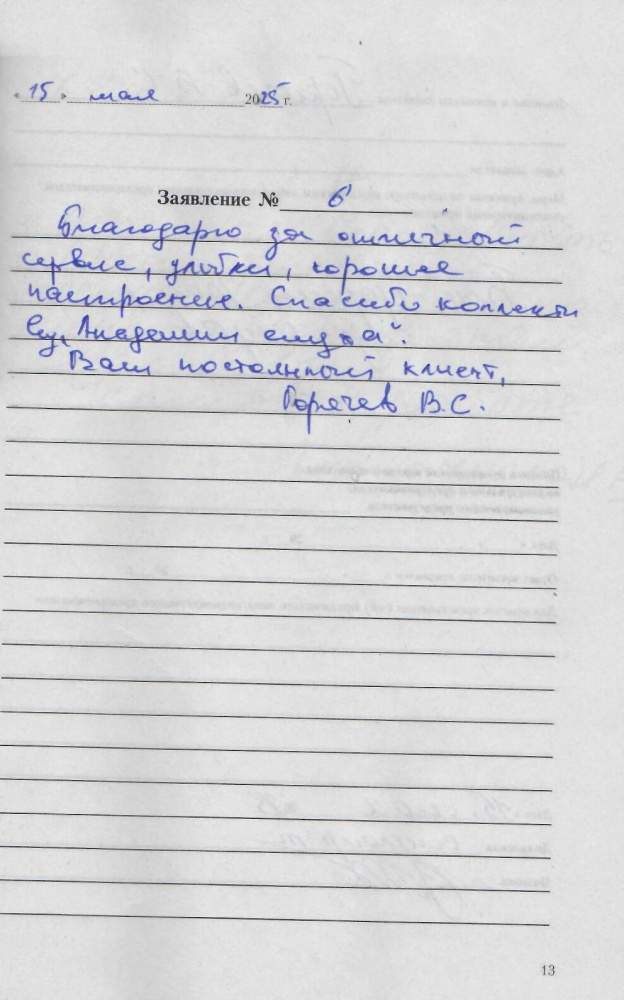 « 15 » мая 2025 г.
Заявление № 6
Благодарю за отличный
сервис, улыбки, хорошее
настроение. Спасибо коллекти
ву „Академии слуха“.
Ваш постоянный клиент,
Горячев В.С.
13